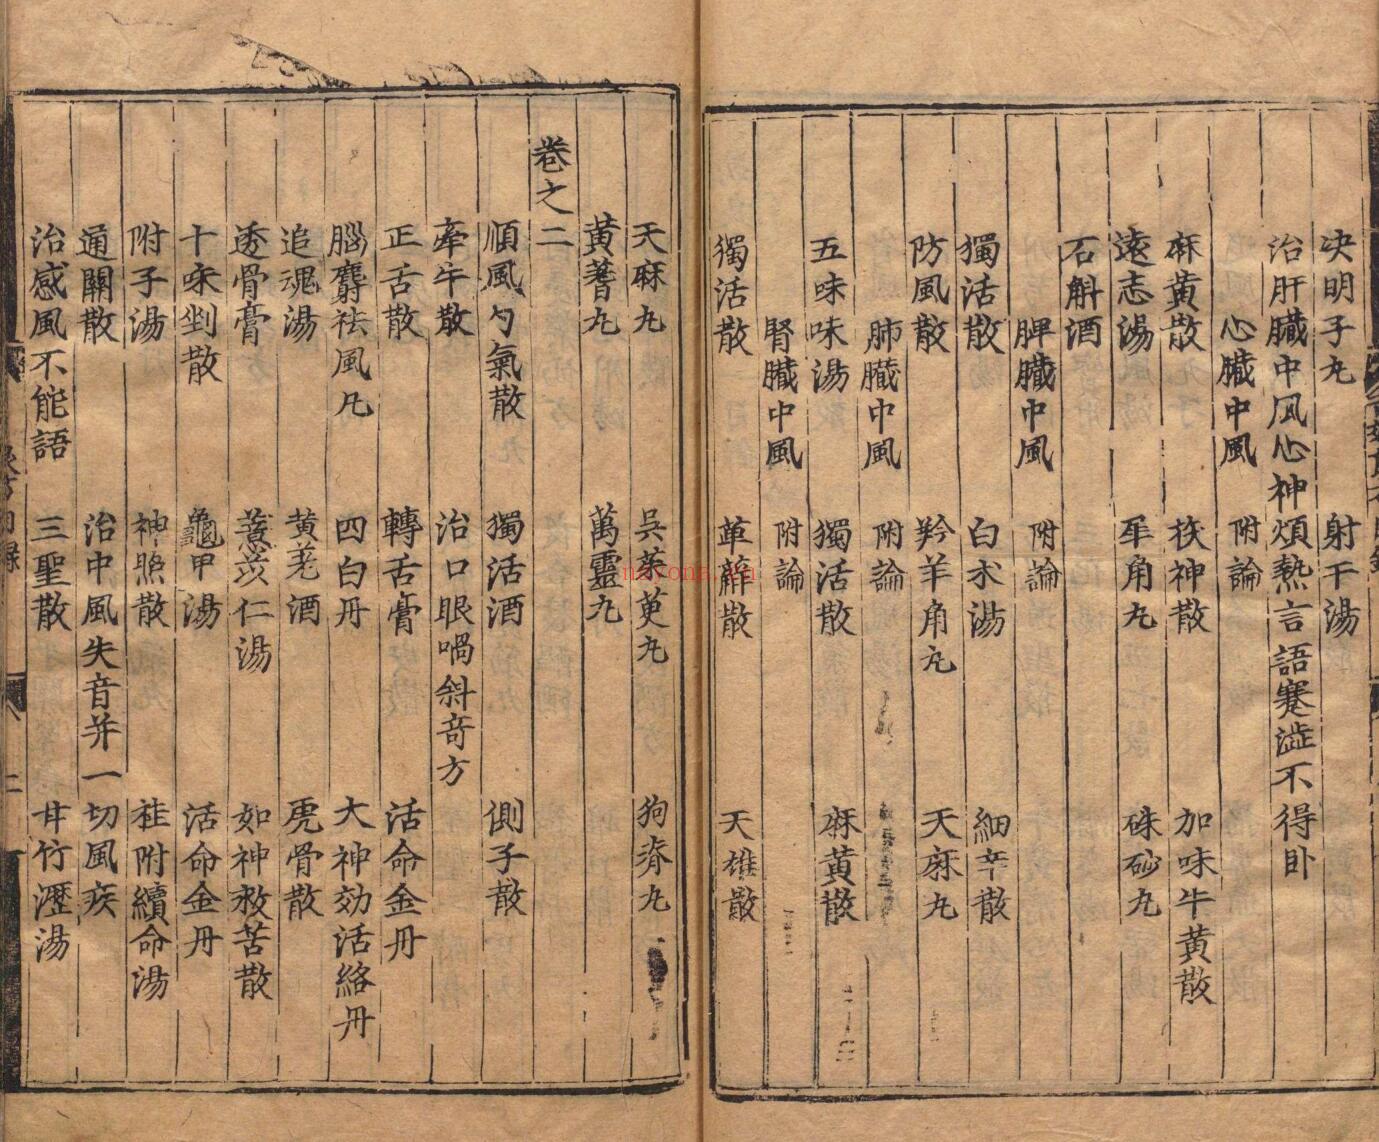 决明子丸 射干湯
治肝臟中风心神煩熱言語蹇澁不得卧
心臟中風 附論
麻黄散 茯神散 加味牛黄散
遠志湯 犀角丸 硃砂丸
石斛酒
脾臟中風 附論
獨活散 白术湯 細辛散
防風散 羚羊角丸 天麻丸
肺臟中風 附論
五味味湯 獨活散 麻黄散
腎臟中風 附論
獨活散 萆薢散 天雄散
天麻丸 吳茱萸丸 狗脊丸
黄蓍丸 萬靈丸
卷之二
順風勻氣散 獨活酒 側子散
牽牛散 治口眼喎斜竒方
正舌散 轉舌膏 活命金丹
腦麝祛風凡 四白丹 大神効活絡丹
追魂湯 黄芪酒 虎骨散
透骨膏 薏苡仁湯 如神救苦散
十味剉散 龜甲湯 活命金丹
附子湯 神照散 桂附續命湯
通關散 治中風失音并一切風疾
治感風不能語 三聖散 甘竹瀝湯
二
nayona.vn